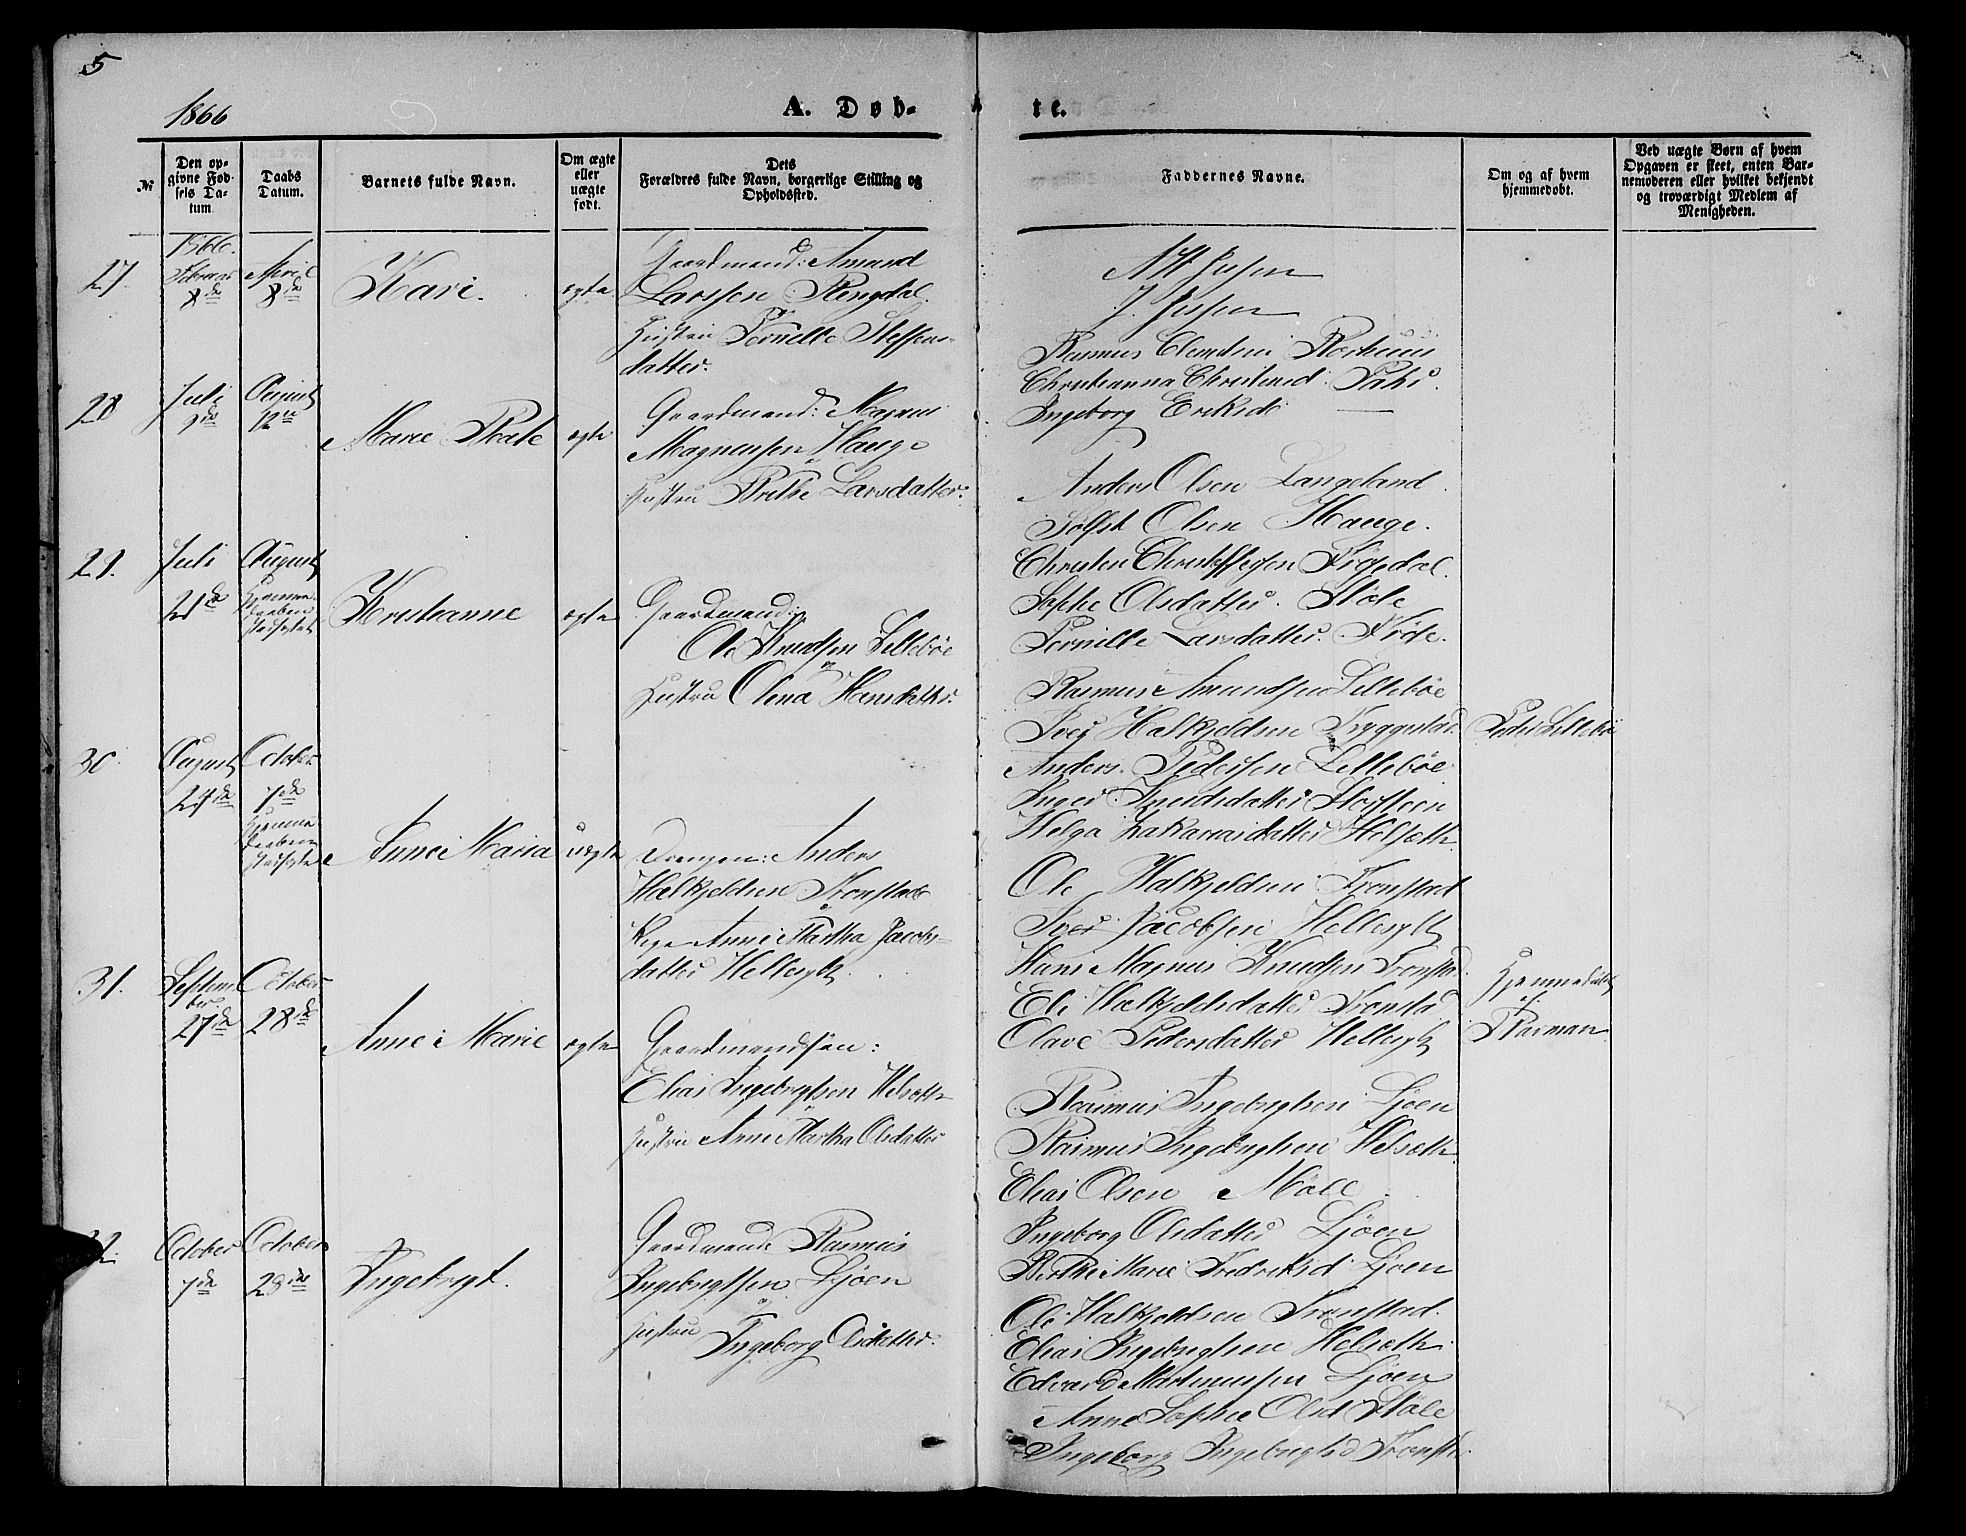 5
1866
A. Døb-
te.
№
Den op-
givne Fød-
sels Da-
tum
Daabs
Datum.
Barnets fulde Navn.
Om ægte
eller
uægte
født.
Dets
Forældres fulde Navn, borgerlige Stilling og
Opholdssted.
Faddernes Navne.
Om og af hvem
hjemmedøbt.
Ved uægte Børn af hvem
Opgaven er skeet, enten Bar-
nemoderen eller hvilket bekjendt
og troværdigt Medlem af
Menigheden.
27.
1866.
Februar
8de
April
8de
Kari.
ægte
Gaardmand: Amund
Larssen Ringdal.
Hustru Pernille Steffens-
datter.
J. Jussen
Rasmus
Christianna
Ingeborg Eriksd.
28
Juli
9de
August
12te
Marie
ægte
Gaardmand: Magnus
Magnussen Hauge
Hustru Brithe Larsdatter.
Anders Olsen Langeland.
Olsen Hauge.
Christen
Sophie Olsdatter. Støle
Pernille Larsdatter.
29.
Juli
21de
August
Hjemme-
daaben
stadfæstet
Kristianne
ægte
Gaardmand:
Ole Knudsen Lillebøe
og
Hustru Olena Hansdatter.
Rasmus Amundsen Lillebøe
Iver Halkjeldsen Tryggestad.
Anders. Pedersen Lillebøe
Inger Knudsdatter
Helga Zakariasdatter Helseth
Peder Lillebø
30.
August
24de
October
7de
Hjemme-
daaben
stadfæstet
Anne Maria
uægte
Drengen: Anders
Halkjeldsen Tronstad
og
Pige Anne Martha Jacobs-
datter Hellesylt.
Ole Halkjeldsen Tronstad
Iver Jacobsen Hellesylt
Hans Magnus Knudsen Tronstad.
Eli Halkjeldsdatter Tronstad
Olave Pedersdatter Hellesylt
Hjemmedøbt
af
31.
Septem-
ber.
27de
October
28de
Anne Marie
ægte
Gaardmandssøn:
Elias Ingebrigtsen Helseth
og
Hustru Anne Martha Olsdatter
Rasmus Ingebrigtsen Ljøen
Rasmus Ingebrigtsen Helseth.
Elias Olsen Støle
Ingeborg Olsdatter Ljøen
Berthe Marie Fredriksd Ljøen
32.
October
7de
October
28de
Ingebrigt.
Gaardmand Rasmus
Ingebrigtsen Ljøen
og
Hustru Ingeborg Olsdatter.
Ole Halkjeldsen Tronstad.
Elias Ingebrigtsen Helseth
Edvard Martinussen Ljøen
Anne Sophie Olsd Støle
Ingeborg Ingebrigtsd Tronstad.